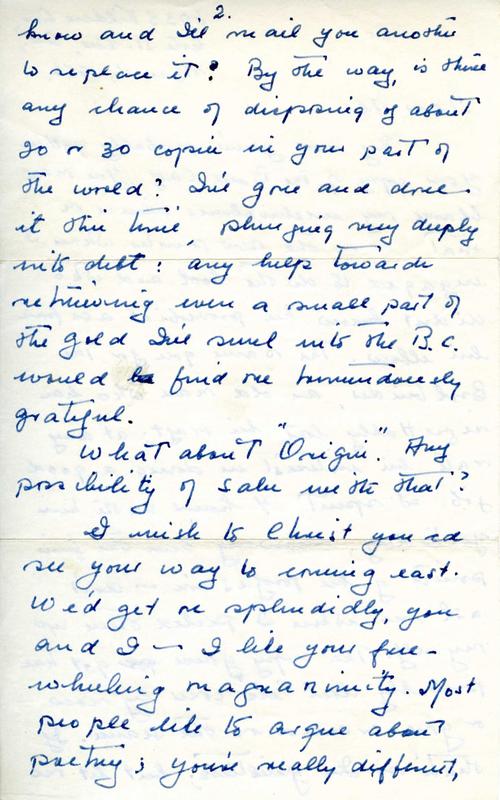 2.
know and I'll mail you another
to replace it? By the way, is there
any chance of disposing of about
20 or 30 copies in your part of
the world? I've gone and done
it this time, plunging very deeply
into debt: any help towards
retrieving even a small part of
the gold I've sunk into the B.C.
would find me tremendously
grateful.
What about "Origin". Any
possibility of sales with that?
I wish to Christ you'd
see your way to coming east.
We'd get on splendidly, you
and I — I like your free-
wheeling magnanimity. Most
people like to argue about
poetry; you're really different,